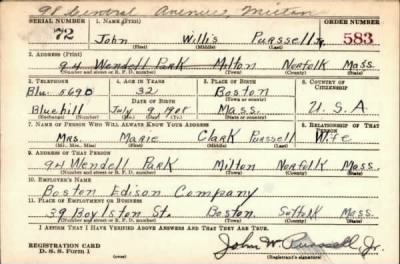 91 Central Avenue, Milton
SERIAL NUMBER 1. NAME (Print) ORDER NUMBER
72 John Willis Purssell Jr. 583
(First) (Middle) (Last)
2. ADDRESS (Print)
94 Wendell Park Milton Norfolk Mass.
(Number and street or R. F. D. number) (Town) (County) (State)
3. TELEPHONE 4. AGE IN YEARS 5. PLACE OF BIRTH 6. COUNTRY OF CITIZENSHIP
Blu. 5690 32 Boston
DATE OF BIRTH (Town or county)
Bluehill July 9 1908 Mass. U.S.A
(Exchange) (Mo.) (Day) (Yr.) (State or country)
7. NAME OF PERSON WHO WILL ALWAYS KNOW YOUR ADDRESS 8. RELATIONSHIP OF THAT PERSON
Mrs. Marie Clark Purssell Wife
(Mr., Mrs., Miss) (First) (Middle) (Last)
9. ADDRESS OF THAT PERSON
94 Wendell Park Milton Norfolk Mass.
(Number and street or R. F. D. number) (Town) (County) (State)
10. EMPLOYER'S NAME
Boston Edison Company
11. PLACE OF EMPLOYMENT OR BUSINESS
39 Boylston St. Boston Suffolk Mass.
(Number and street or R. F. D. number) (Town) (County) (State)
I AFFIRM THAT I HAVE VERIFIED ABOVE ANSWERS AND THAT THEY ARE TRUE.
REGISTRATION CARD
D. S. S. Form 1
John W. Purssell, Jr.
(Registrant's signature)